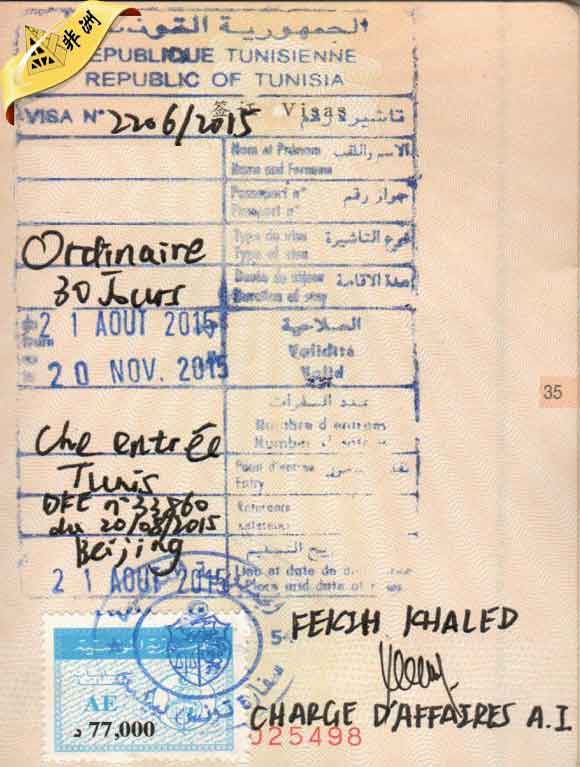 非洲
الجمهورية التونسية
REPUBLIQUE TUNISIENNE
REPUBLIC OF TUNISIA
签证 Visas
VISA N° 2206/2015 تاشيرة رقم
Nom et Prénom الاسم واللقب
Name and Forname
Passeport n° جواز رقم
Passport n°
Type de visa نوع التاشيرة
Type of visa
Ordinaire
Durée de séjour مدة الاقامة
Duration of stay
30 Jours
21 AOUT 2015 الصلاحية
Validité
20 NOV. 2015 Valid
35
عدد السفرات
Nombre d'entrées
Number of entries
Une entrée
Entry
Tunis
DFE n° 33860
du 20/08/2015
Beijing
Lieu et date de
Place and date of
21 AOUT 2015
54
FEKIH KHALED
سفارة تونس ببكين
AE
77,000 د
CHARGE D'AFFAIRES A.I
025498